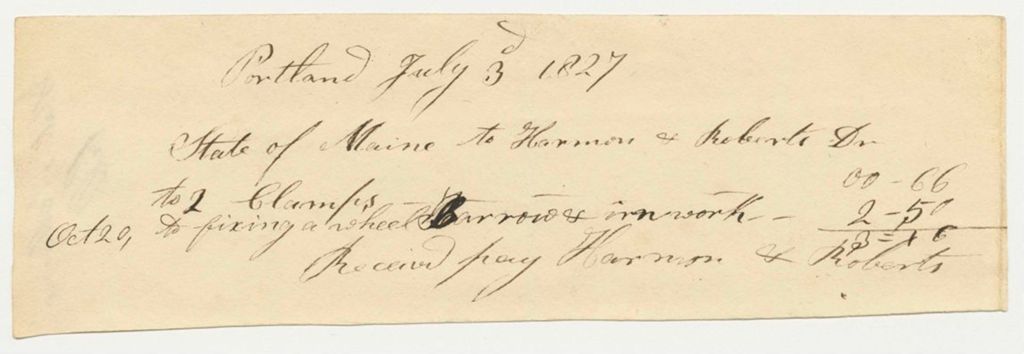 Portland July 3d 1827
State of Maine to Harmon & Roberts Dr
to 2 Clamps 00-66
Oct 20, to fixing a wheel Barrow & irn work - 2-50
3=16
Received pay Harmon & Roberts